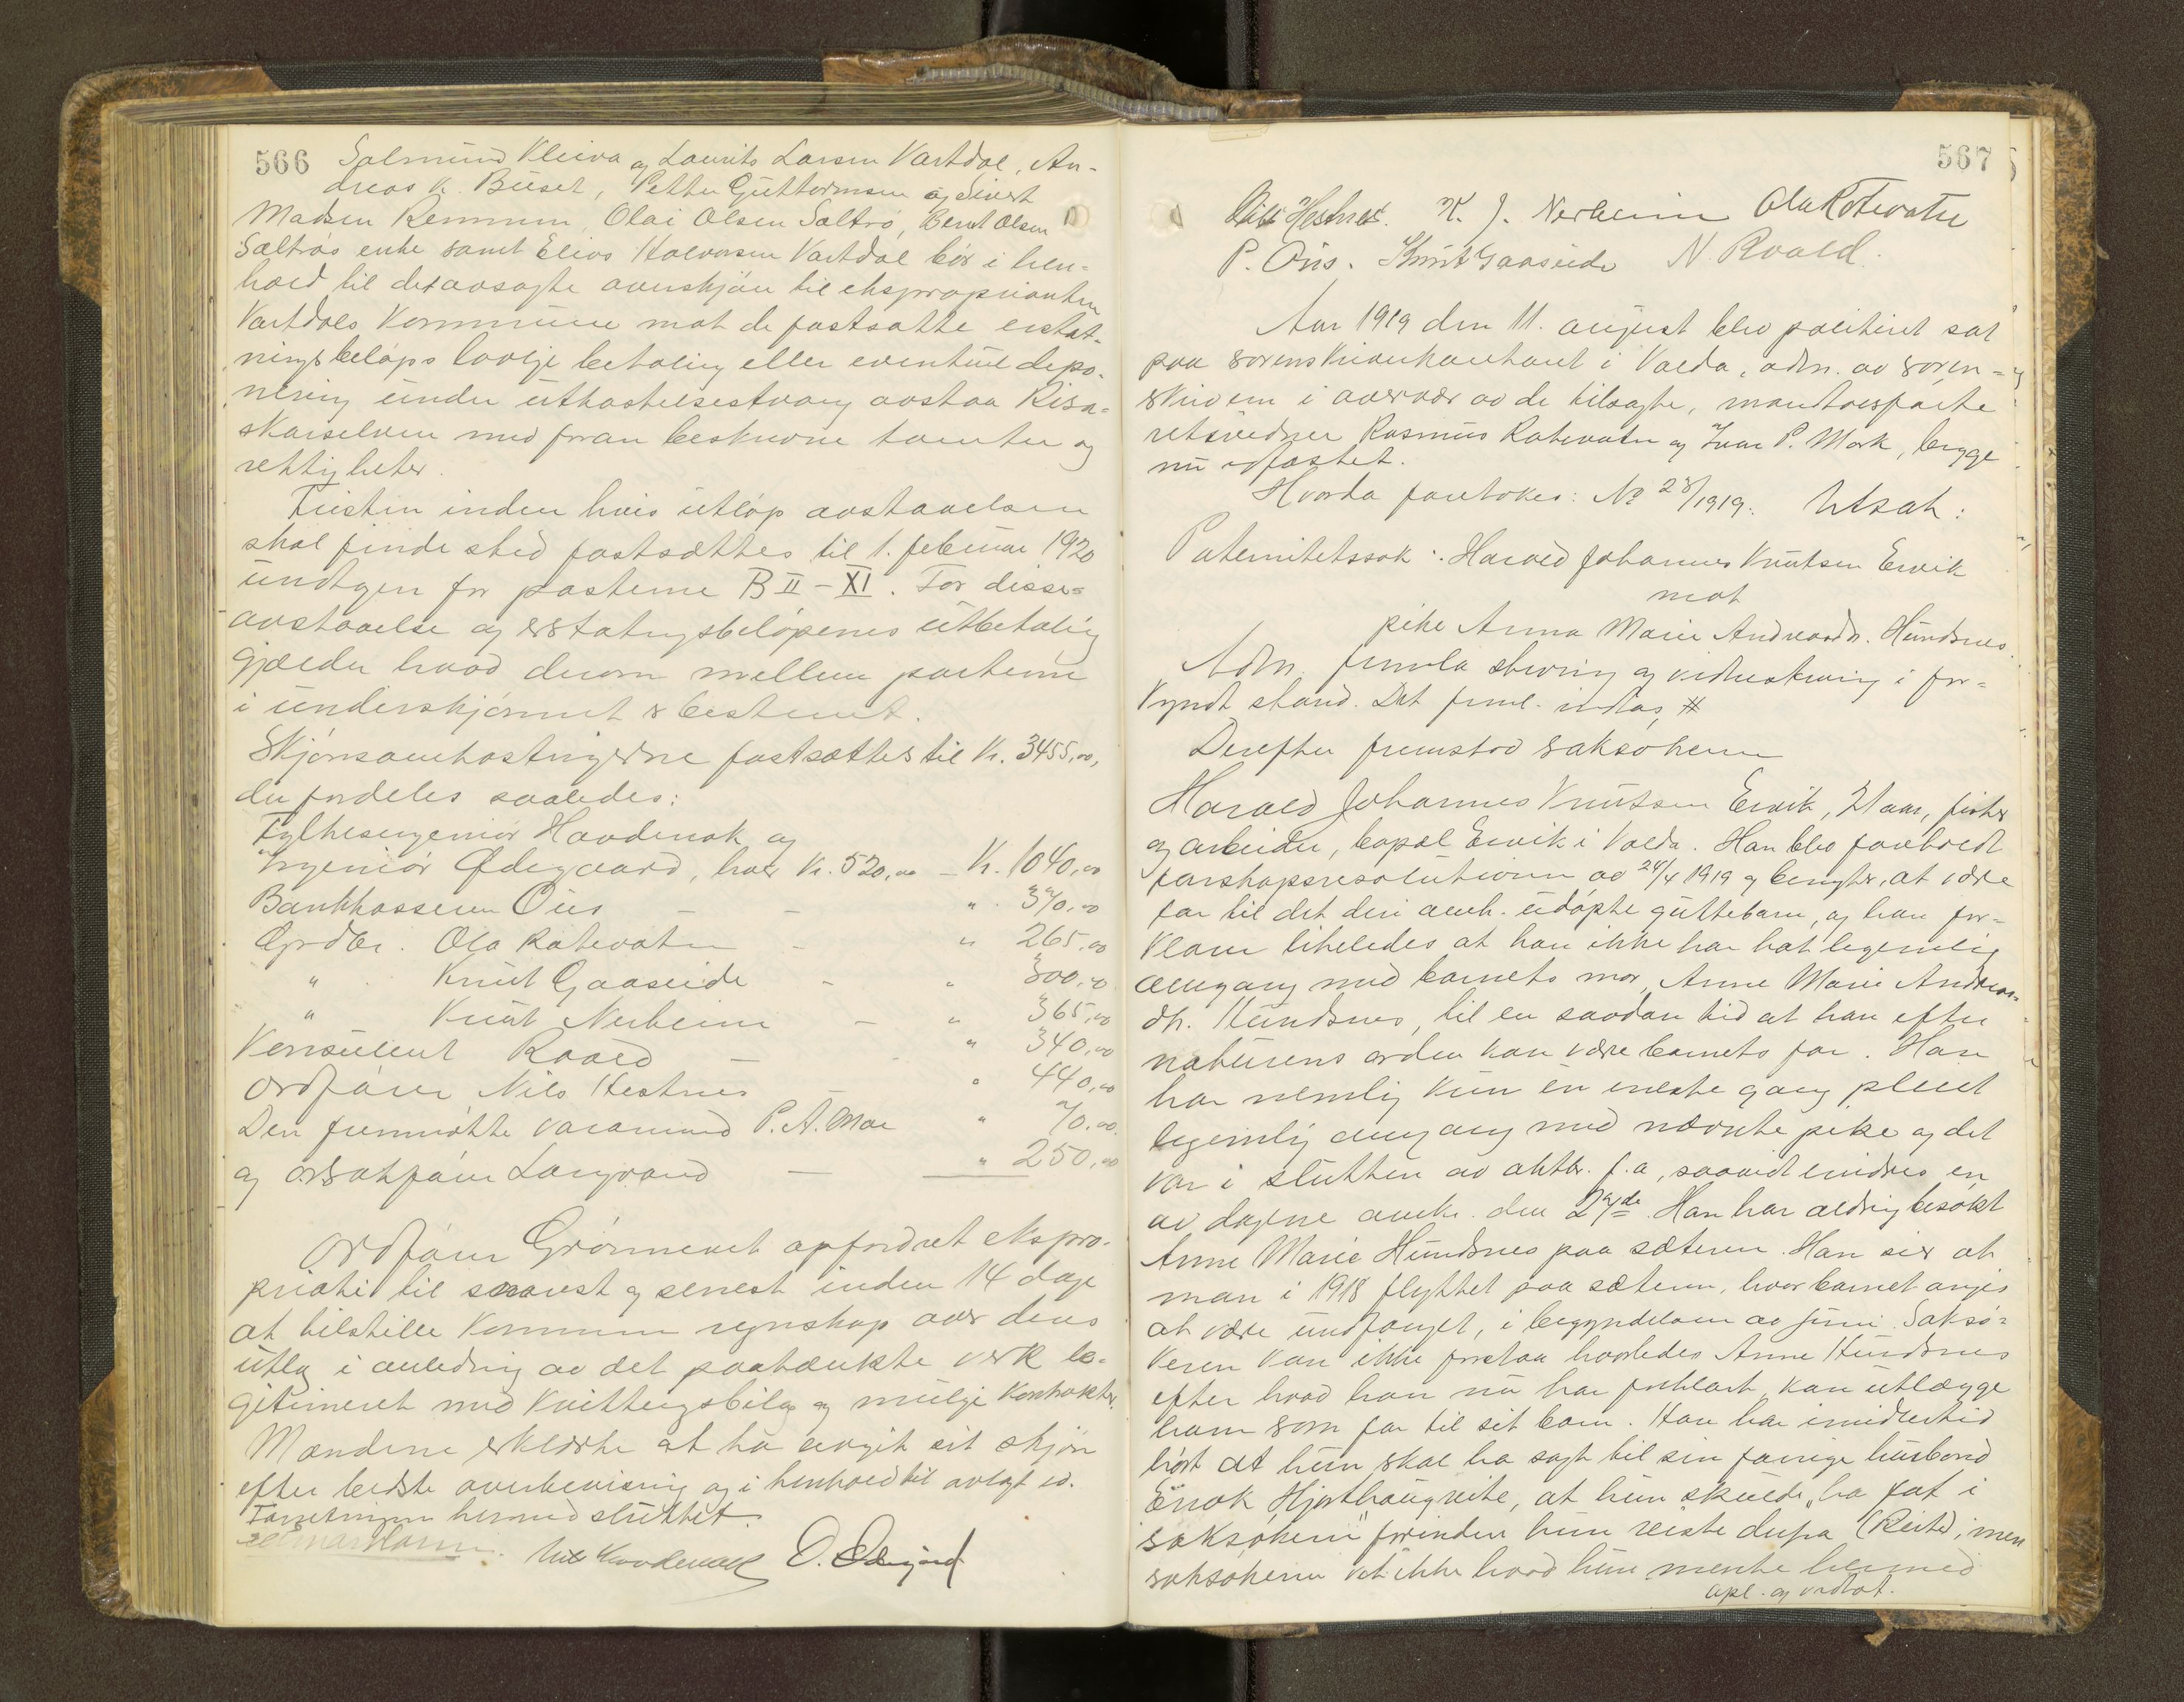 566
Salmund Kleiva og Laurits Larsen Vartdal, An-
dreas K. Buset, Petter Guttormsen og Sivert
Madsen Remmen, Olai Olsen Saltrø, Bernt Olsen
Saltrøs enke samt Elias Halvorsen Vartdal bør i hen-
hold til det avsagte overskjøn til ekspropriantен
Vartdals Kommune mot de fastsatte erstat-
ningsbeløps lovlige betaling eller eventuel depo-
nering under utkastelsestvang avstaa Risa-
skarselven med foran beskrevne tomter og
rettigheter.
Fristen inden hvis utløp avstaaelsen
skal finde sted fastsættes til 1. februar 1920
undtagen for posterne B II – XI. For disses
avstaaelse og erstatningsbeløpenes utbetaling
gjælder hvad derom mellem parterne
i underskjønnet er bestemt.
Skjønsomkostningerne fastsættes til Kr. 3455,00,
der fordeles saaledes:
Fylkesingeniør Hovdenak og
Ingeniør Ødegaard, hver Kr. 520,00 – Kr. 1040,00
Bankkasserer Ous – – " 370,00
Grdbr. Ola Rotevatn – " 265,00
" Knut Gaaseide – " 300,00
" Knut Nerheim – " 365,00
Konsulent Roald – " 340,00
Ordfører Nils Hestnes – " 440,00
Den fremmøtte varamand P. A. Moe " 70,00
og ordfører Langvand – " 250,00
Ordfører Grønnevet opfordret ekspro-
priati til snarest og senest inden 14 dage
at tilstille Kommunen regnskap over deres
utlæg i anledning av det paatænkte verk le-
gitimeret med Kvitteringsbilag og mulige Kontrakter.
Mændene erklærte at ha avgit sit skjøn
efter bedste overbevisning og i henhold til avlagt ed.
Forretningen hermed sluttet.
Nils Hovdenak O. Ødegaard
567
Nils Hestnes. K. J. Nerheim Ola Rotevatn
P. Ous. Knut Gaaseide N. Roald.
Aar 1919 den 11. august blev politiret sat
paa sorenskriverkontoret i Volda, adm. av soren-
skriveren i overvær av de tilsagte, mandtalsførte
retsvidner Rasmus Rotevatn og Ivar P. Mork, begge
nu edfæstet.
Hvorda foretokes: No 28/1919. Utsat:
Paternitetssak: Harald Johannes Knutsen Ervik
mot
pike Anna Marie Andreasdr. Hundsnes.
Adm. fremla stevning og vidnestevning i for-
kyndt stand. Det freml. indtas #
Derefter fremstod saksøkeren
Harald Johannes Knutsen Ervik, 21 aar, fisker
og arbeider, bopæl Ervik i Volda. Han blev foreholdt
farskapsresolutionen av 24/4 1919 og benegter, at være
far til det deri omh. udøpte guttebarn, og han for-
klarer likeledes at han ikke har hat legemlig
omgang med barnets mor, Anne Marie Andreas-
dtr. Hundsnes, til en saadan tid at han efter
naturens orden kan være barnets far. Han
har nemlig kun én eneste gang pleiet
legemlig omgang med nævnte pike og det
var i slutten av oktbr. f.a., saavidt erindres en
av dagene omkr. den 27de. Han har aldrig besøkt
Anne Marie Hundsnes paa sæteren. Han sier at
man i 1918 flyttet paa sæteren, hvor barnet angis
at være undfanget, i begyndelsen av juni. Saksø-
keren kan ikke forstaa hvorledes Anne Hundsnes
efter hvad han nu har forklart, kan utlægge
ham som far til sit barn. Han har imidlertid
hørt at hun skal ha sagt til sin forrige husbond
Enok Hjorthaugreite, at hun skulde „ha fat i
saksøkeren" forinden hun reiste derfra (Reite), men
saksøkeren vet ikke hvad hun mente hermed
opl. og vedtat.